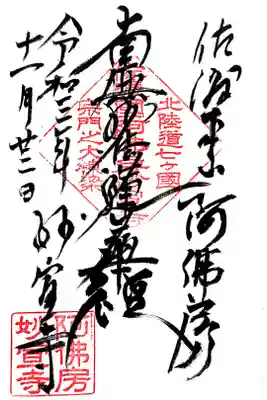 佐渡
阿佛房
南無妙法蓮華経
妙宣寺
令和三年
十一月廿三日
北陸道七ヶ國
宗門之大棟梁
阿佛房
妙宣寺